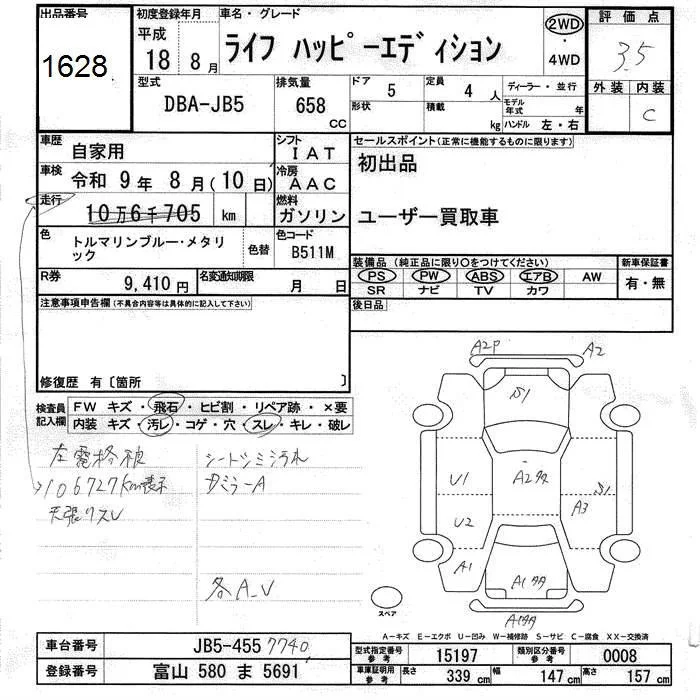 出品番号
1628
初度登録年月
平成
18 年 8 月
車名・グレード
ライフ ハッピーエディション
2WD
・
4WD
評価点
3.5
外装 内装
C
型式
DBA-JB5
排気量
658
CC
ドア 5
形状
定員 4 人
積載 kg
ディーラー・並行
モデル年式 年
ハンドル 左・右
車歴 自家用
シフト IAT
車検 令和 9年 8月(10日)
冷房 AAC
走行 10万6千705 km
燃料 ガソリン
セールスポイント(正常に機能するものに限ります)
初出品
ユーザー買取車
色 トルマリンブルー・メタリック
色替
色コード
B511M
R券 9,410円
名変通知期限 月 日
装備品(純正品に限り○をつけてください)
PS PW ABS エアB AW
SR ナビ TV カワ
新車保証書
有・無
注意事項申告欄(不具合内容等は具体的に記入して下さい)
後日品
修復歴 有〔箇所 〕
検査員記入欄
FW キズ・飛石・ヒビ割・リペア跡・×要
内装 キズ・汚レ・コゲ・穴・スレ・キレ・破レ
シートシミ汚れ
→106727Km表示
Dミラー A
天張りスレ
各A_V
A2P
A2
S1
U1
A2タタ
S1
A3
U2
A1
A1タタ
A1タタ
スペア
A－キズ E－エクボ U－凹み W－補修跡 S－サビ C－腐食 XX－交換済
車台番号 JB5-4557740
登録番号 富山 580 ま 5691
型式指定番号 参考 15197
類別区分番号 参考 0008
車庫証明用 参考 長さ 339 cm 幅 147 cm 高さ 157 cm